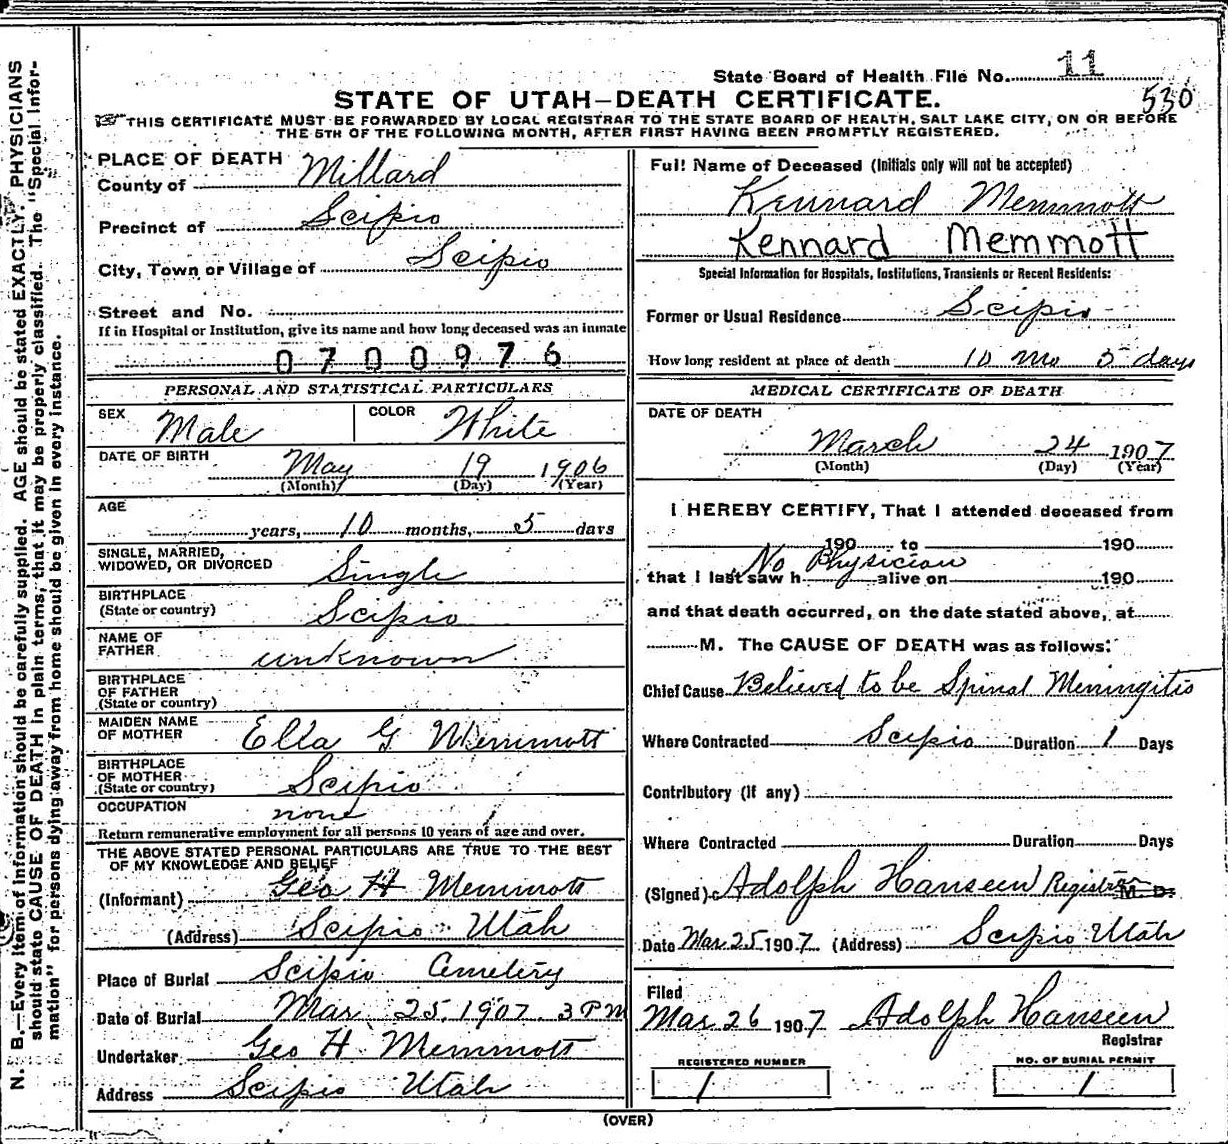 State Board of Health File No. 11
530
STATE OF UTAH—DEATH CERTIFICATE.
THIS CERTIFICATE MUST BE FORWARDED BY LOCAL REGISTRAR TO THE STATE BOARD OF HEALTH, SALT LAKE CITY, ON OR BEFORE
THE 5TH OF THE FOLLOWING MONTH, AFTER FIRST HAVING BEEN PROMPTLY REGISTERED.
N. B.—Every item of information should be carefully supplied. AGE should be stated EXACTLY. PHYSICIANS
should state CAUSE OF DEATH in plain terms, that it may be properly classified. The "Special Infor-
mation" for persons dying away from home should be given in every instance.
PLACE OF DEATH
County of Millard
Precinct of Scipio
City, Town or Village of Scipio
Street and No.
If in Hospital or Institution, give its name and how long deceased was an inmate
0700976
PERSONAL AND STATISTICAL PARTICULARS
SEX Male COLOR White
DATE OF BIRTH
May 19 1906
(Month) (Day) (Year)
AGE
years, 10 months, 5 days
SINGLE, MARRIED,
WIDOWED, OR DIVORCED Single
BIRTHPLACE
(State or country) Scipio
NAME OF
FATHER unknown
BIRTHPLACE
OF FATHER
(State or country)
MAIDEN NAME
OF MOTHER Ella G Memmott
BIRTHPLACE
OF MOTHER
(State or country) Scipio
OCCUPATION none
Return remunerative employment for all persons 10 years of age and over.
THE ABOVE STATED PERSONAL PARTICULARS ARE TRUE TO THE BEST
OF MY KNOWLEDGE AND BELIEF
(Informant) Geo H Memmott
(Address) Scipio Utah
Place of Burial Scipio Cemetery
Date of Burial Mar 25, 1907. 3 PM
Undertaker Geo H Memmott
Address Scipio Utah
Full Name of Deceased (Initials only will not be accepted)
Kennard Memmott
Kennard Memmott
Special Information for Hospitals, Institutions, Transients or Recent Residents:
Former or Usual Residence Scipio
How long resident at place of death 10 mo 5 days
MEDICAL CERTIFICATE OF DEATH
DATE OF DEATH
March 24 1907
(Month) (Day) (Year)
I HEREBY CERTIFY, That I attended deceased from
190 to 190
No Physician
that I last saw h alive on 190
and that death occurred, on the date stated above, at
M. The CAUSE OF DEATH was as follows:
Chief Cause Believed to be Spinal Meningitis
Where Contracted Scipio Duration 1 Days
Contributory (if any)
Where Contracted Duration Days
(Signed) Adolph Hanseen Registrar M. D.
Date Mar 25 1907 (Address) Scipio Utah
Filed
Mar 26 1907 Adolph Hanseen
Registrar
REGISTERED NUMBER
1
NO. OF BURIAL PERMIT
1
(OVER)